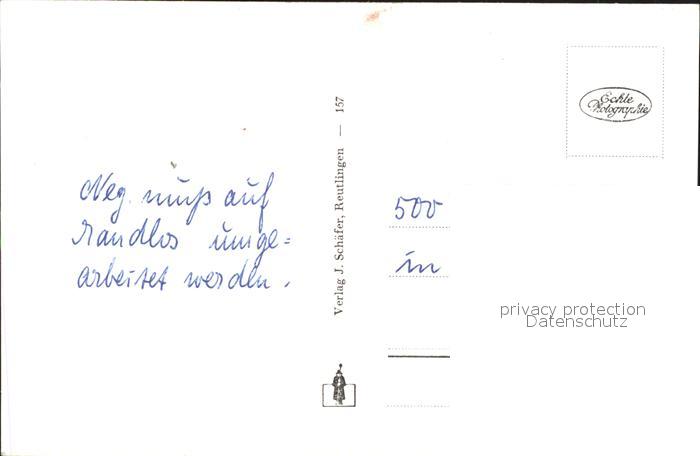 Neg. muß auf
randlos umge=
arbeitet werden.
Verlag J. Schäfer, Reutlingen — 157
Echte
Photographie
500
in
privacy protection
Datenschutz